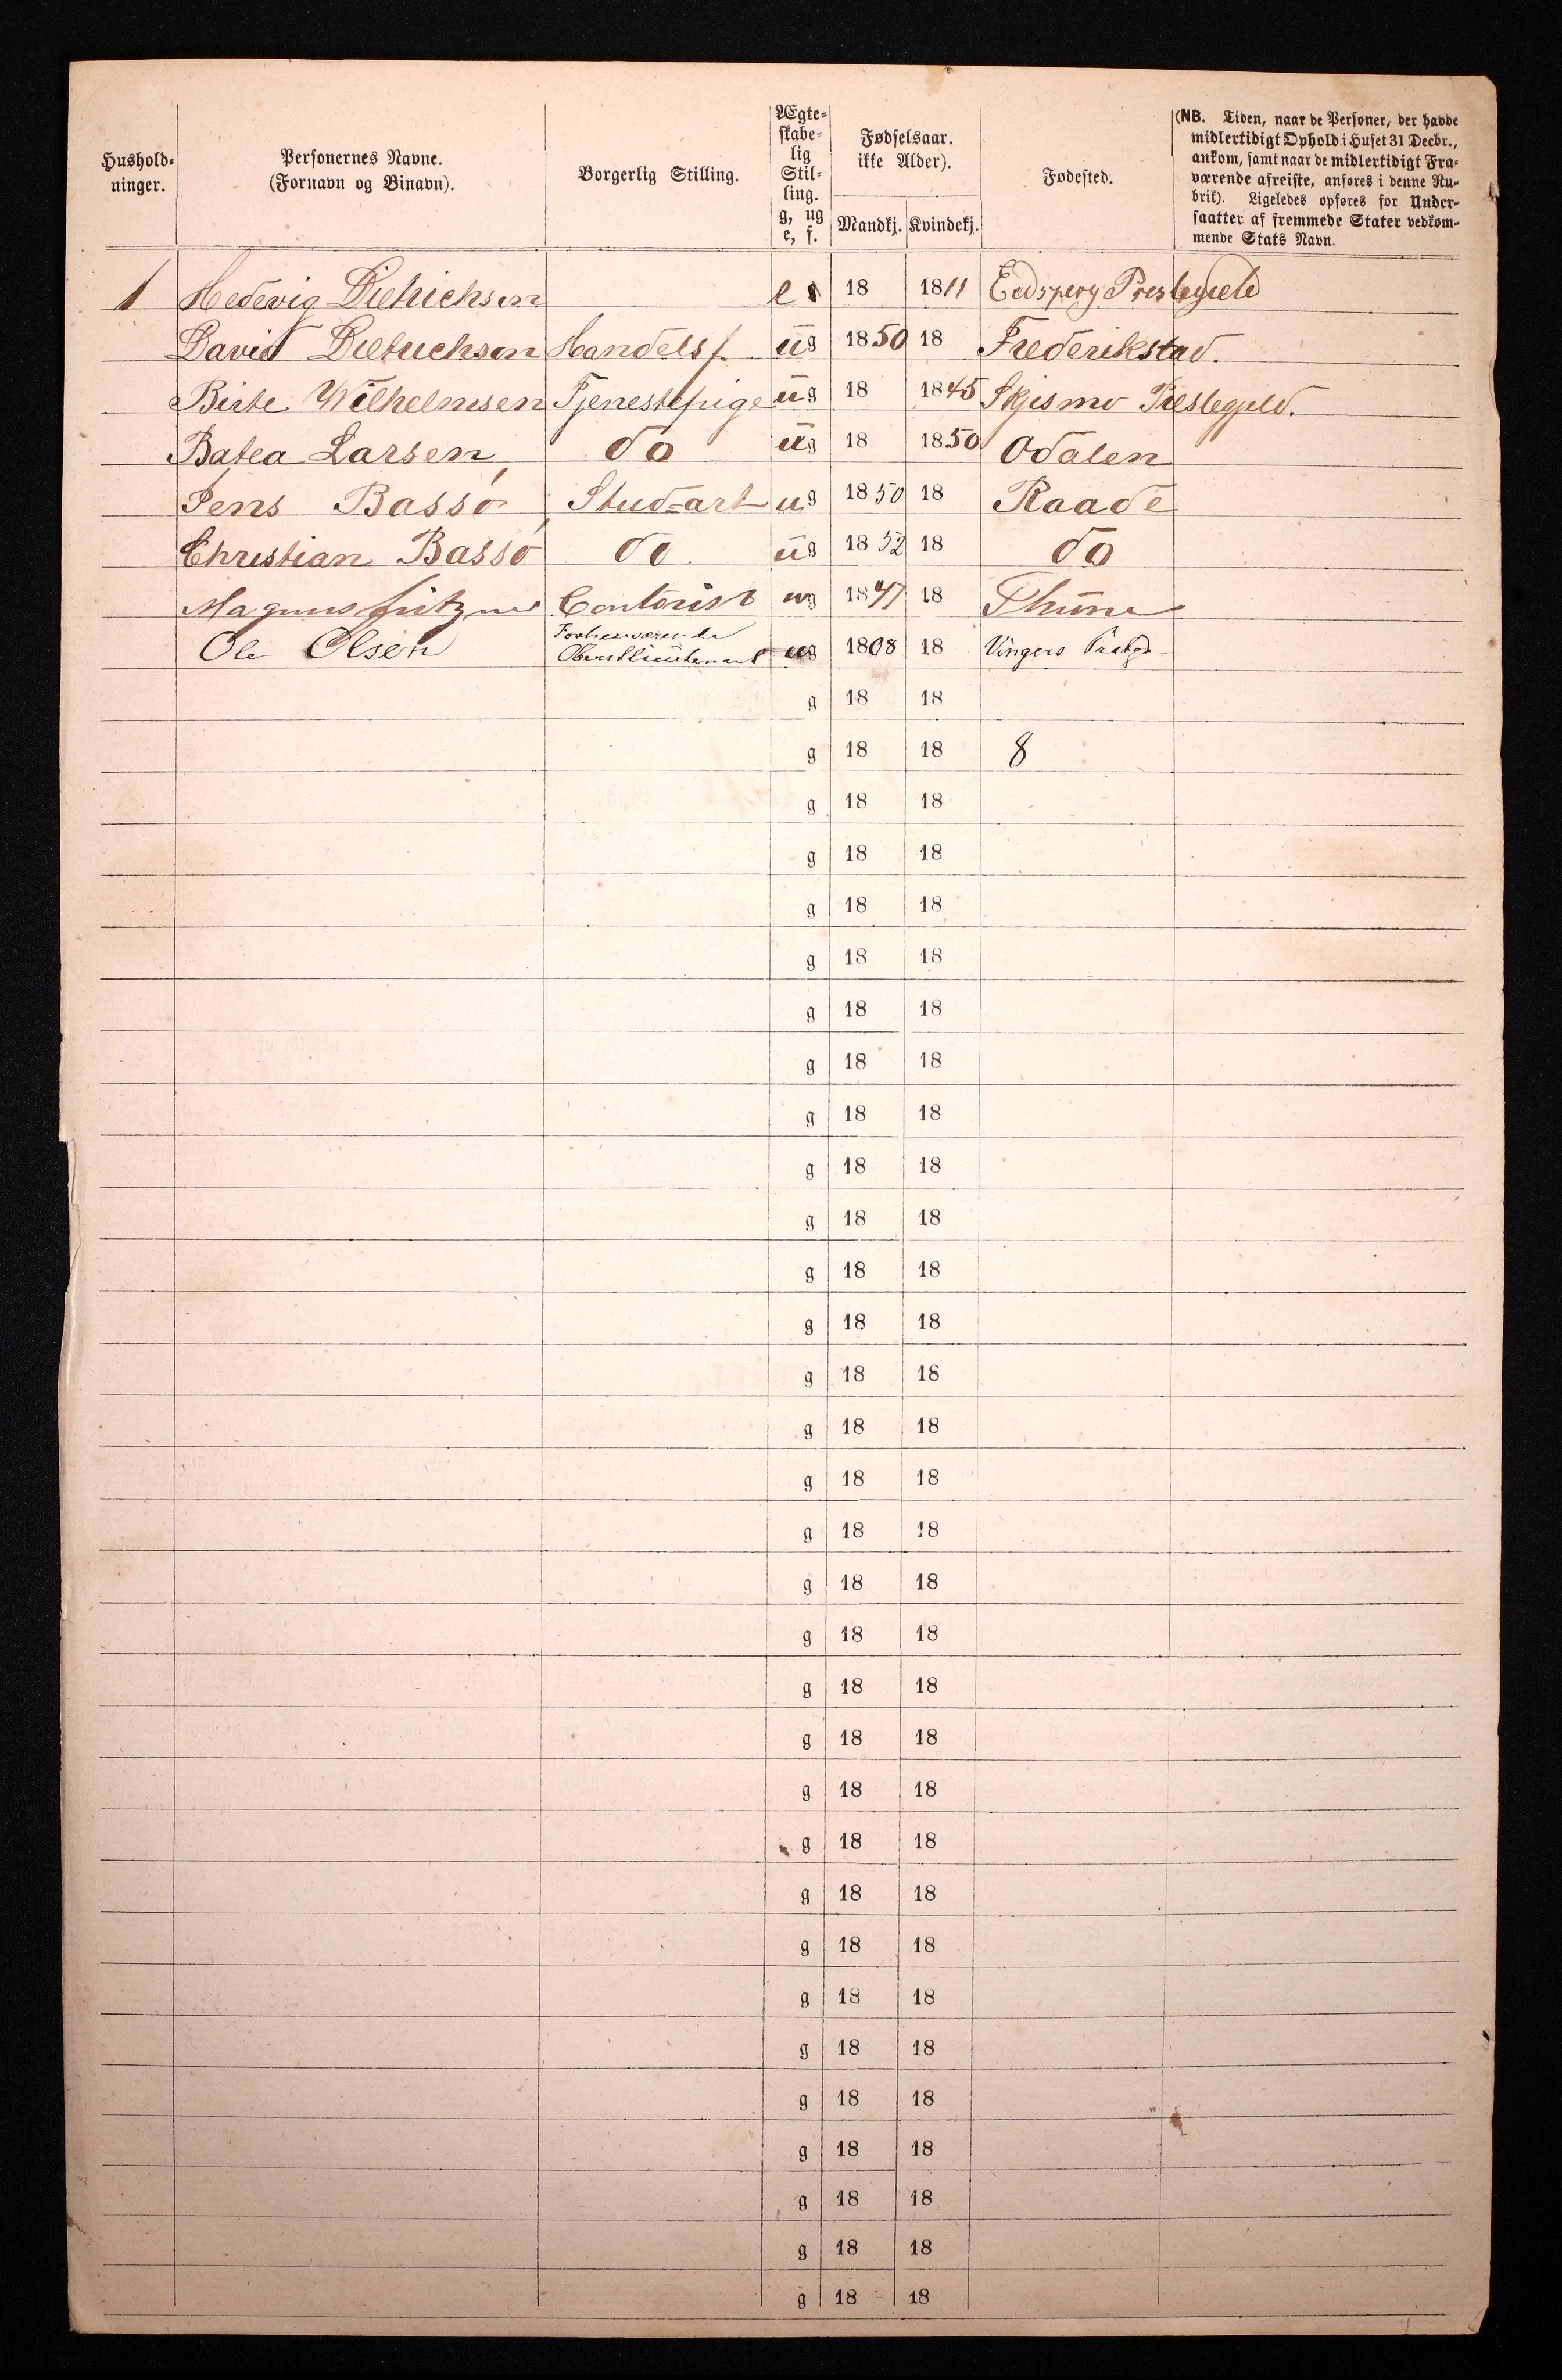 Hushold-
ninger.
Personernes Navne.
(Fornavn og Binavn).
Borgerlig Stilling.
Ægte-
skabe-
lig
Stil-
ling.
g, ug
e, f.
Fødselsaar.
ikke Alder).
Mandkj. Kvindekj.
Fødested.
(NB. Tiden, naar de Personer, der havde
midlertidigt Ophold i Huset 31 Decbr.,
ankom, samt naar de midlertidigt Fra-
værende afreiste, anføres i denne Ru-
brik). Ligeledes opføres for Under-
saatter af fremmede Stater vedkom-
mende Stats Navn.
1 Hedevig Dietrichsen e 18 1811 Eidsberg Prestegjeld
David Dietrichsen Handelsf ug 1850 18 Frederikstad.
Birte Wilhelmsen Tjenestepige ug 18 1845 Prestegjeld.
Batea Larsen do ug 18 1850 Odalen
Jens Bassó Stud=art ug 1850 18 Raade
Christian Bassó do. ug 1852 18 do
Magnus Contorist ug 1847 18 Thune
Ole Olsen Oberstlieutenant ug 1808 18 Vingers
g 18 18
g 18 18 8
g 18 18
g 18 18
g 18 18
g 18 18
g 18 18
g 18 18
g 18 18
g 18 18
g 18 18
g 18 18
g 18 18
g 18 18
g 18 18
g 18 18
g 18 18
g 18 18
g 18 18
g 18 18
g 18 18
g 18 18
g 18 18
g 18 18
g 18 18
g 18 18
g 18 18
g 18 18
g 18 18
g 18 18
g 18 18
g 18 18